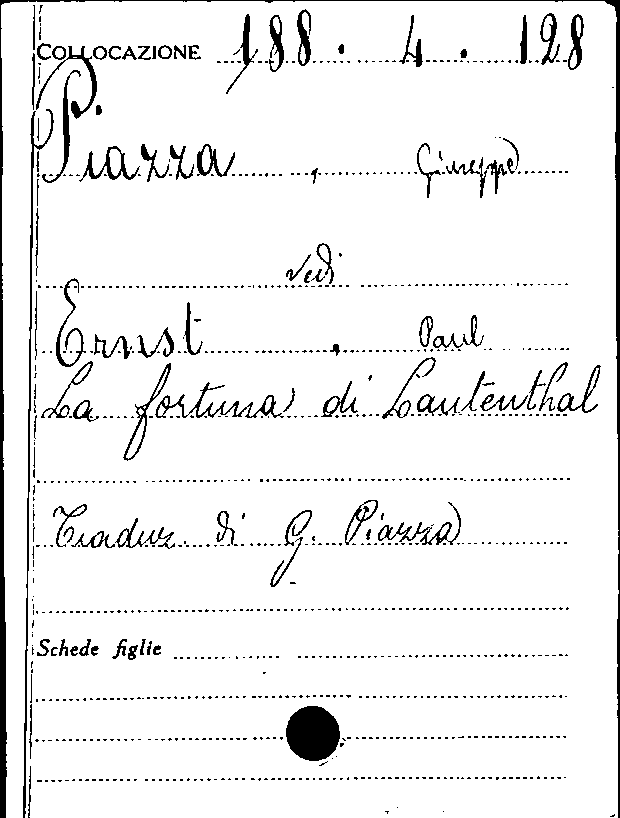 COLLOCAZIONE 188 . 4 . 128
Piazza , Giuseppe
vedi
Ernst , Paul
La fortuna di Lautenthal
Traduz. di G. Piazza
Schede figlie